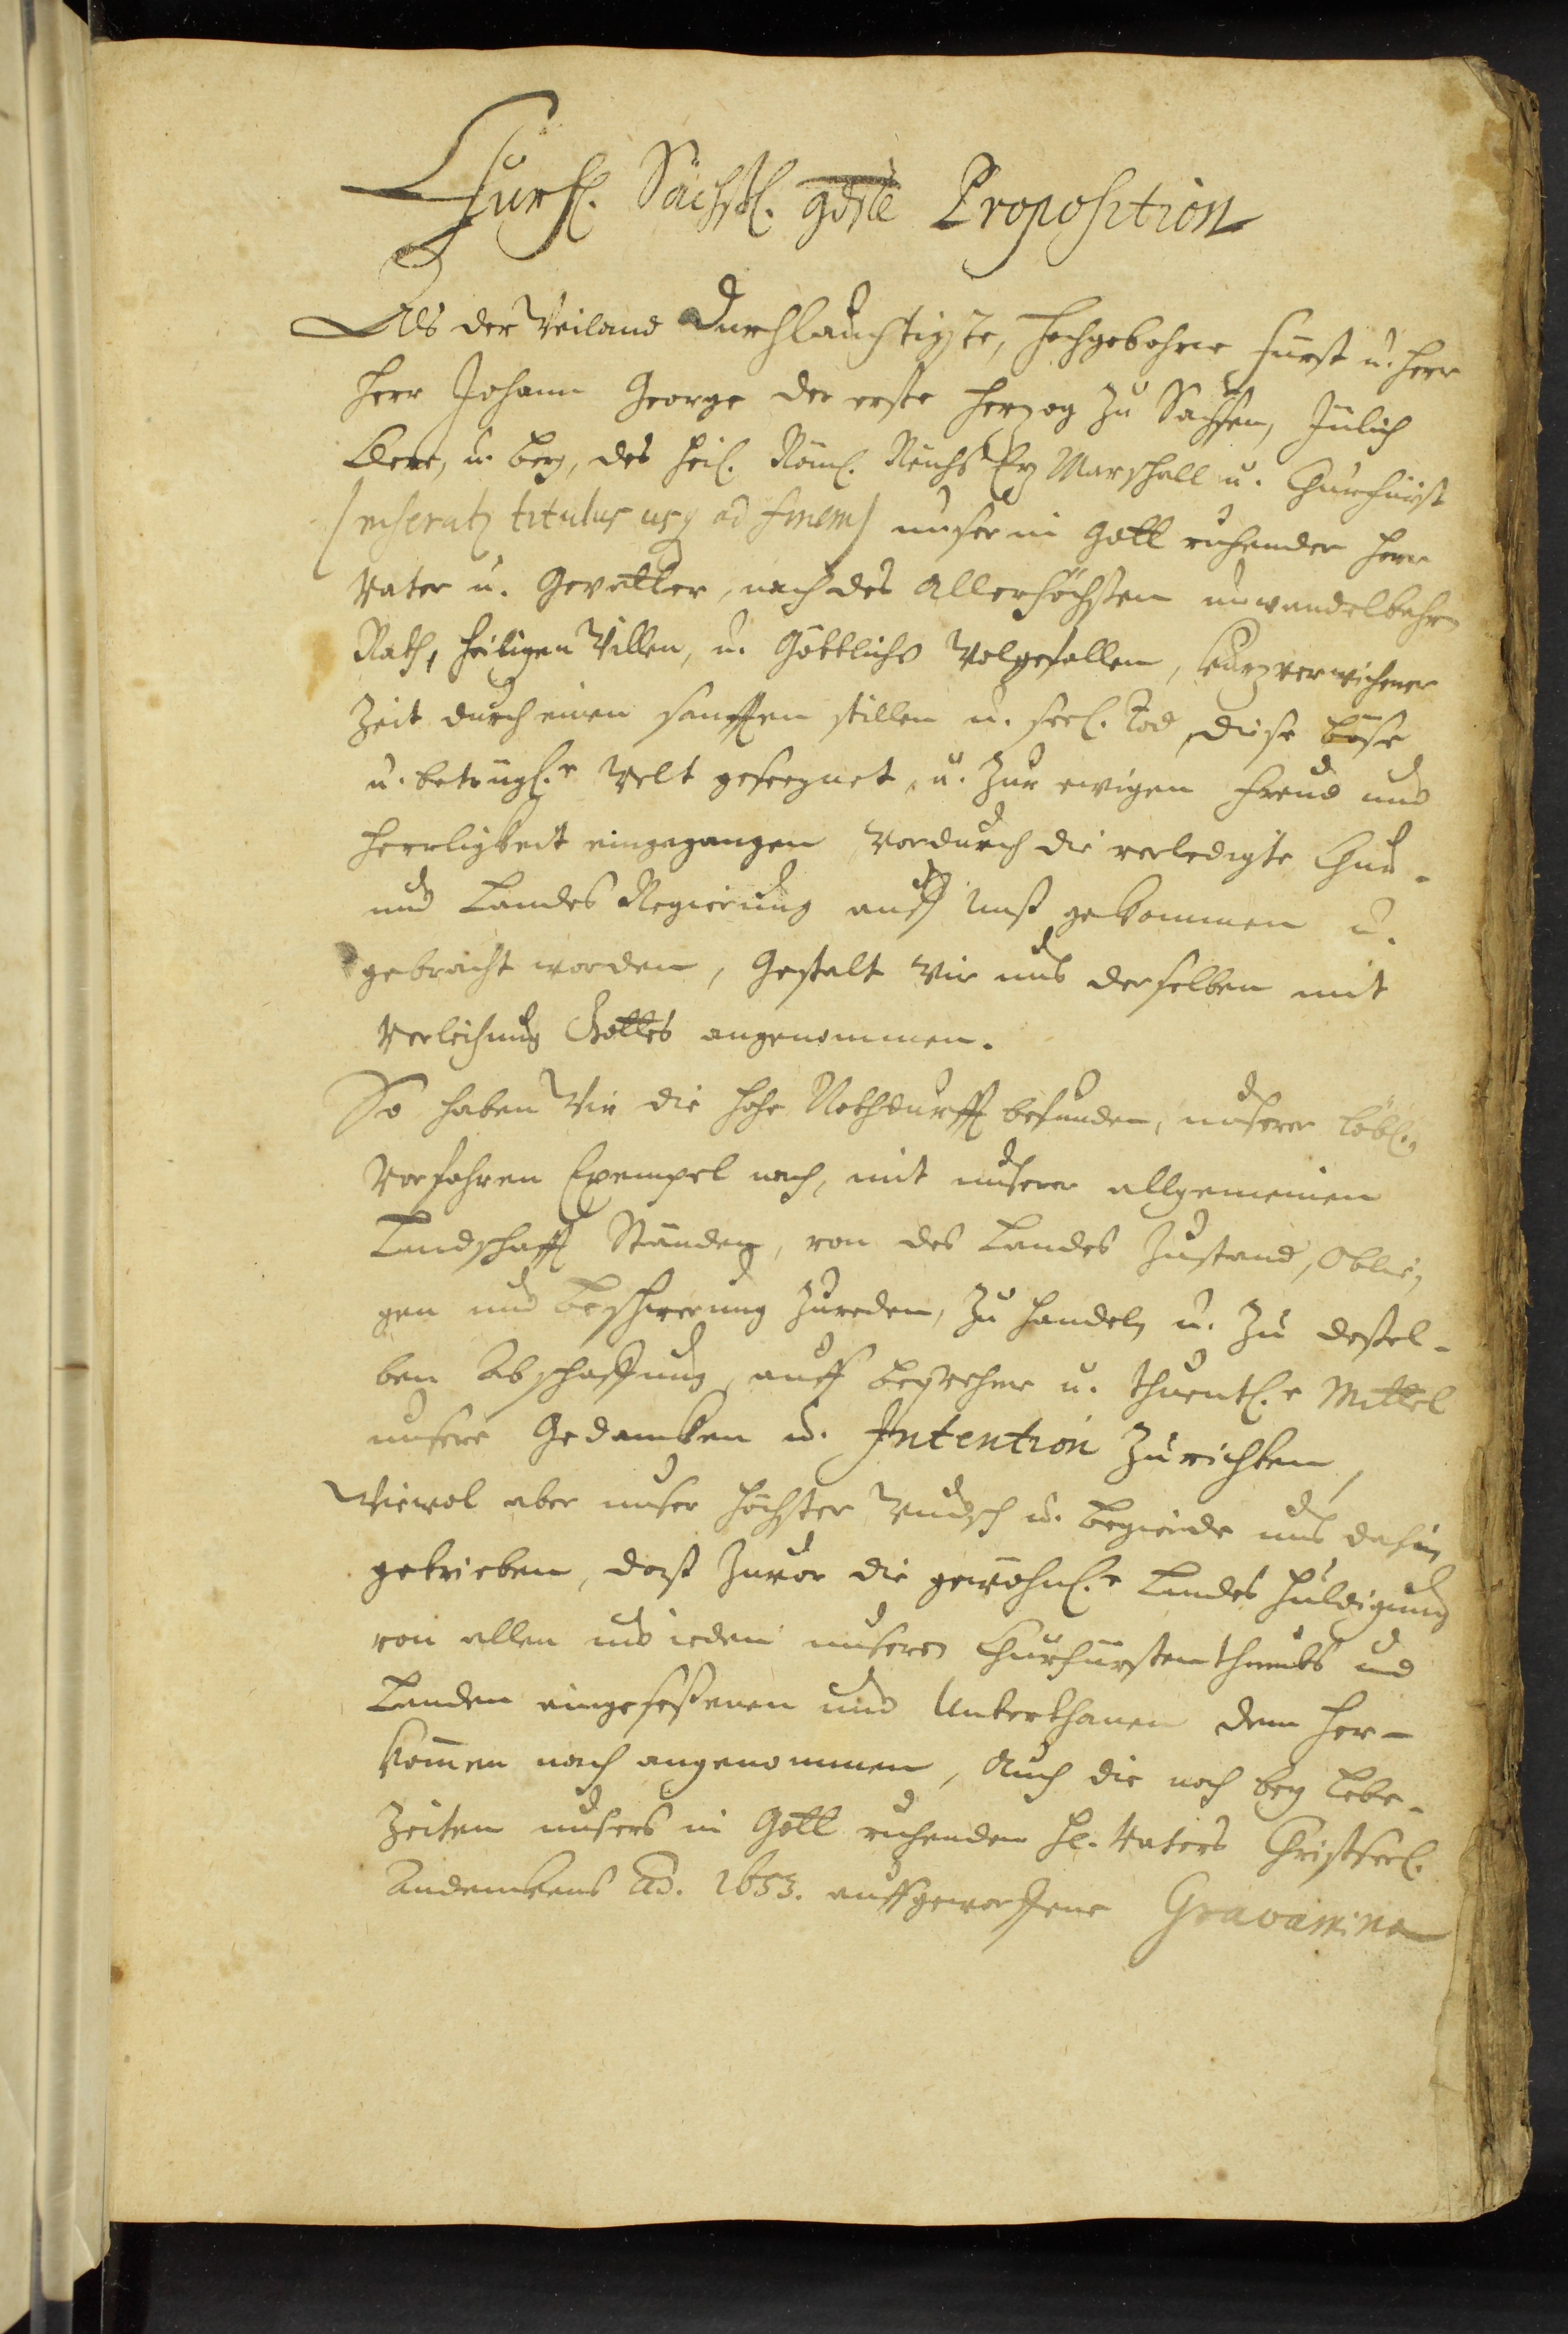 Fürstl. Sächßl. gdste Proposition
Als der Weiland Durchlauchtigste, Hochgebohrne Fürst u. Herr
Herr Johann George der erste Herzog zu Sachsen, Jülich
Cleve, u. Berg, des Heil. Röml. Reichs Erz Marschall u. Churfürst
(inseratz titulus usq ad finem) unser in Gott ruhender Herr
Vater u. Gevatter, nach des Allerhöchsten unwandelbahren
Rath, heiligen Willen, u. Göttlichs Wolgefallen, kurzverwichener
Zeit durch einen sanfften stillen u. seel. Tod, diese böse
u. betrügl.e Welt geseegnet, u. zur ewigen Freud und
Herrligkeit eingegangen, Wordurch die verledigte Chur-
und Landes Regierung auff Unß gekommen u.
gebracht worden, Gestalt Wir uns derselben mit
Verleihung Gottes angenommen.
So haben Wir die hohe Nothdurfft befunden, unserer löbl.
Vorfahren Exempel nach, mit unserer allgemeinen
Landschafft Ständen, von des Landes Zustand, Oblie-
gen und Beschwerung zureden, zu handeln u. zu deßel-
ben Abschaffung, auff beqvehme u. thuentl.e Mittel
unsere Gedancken u. Intention zurichten,
Wiewol aber unser höchster Wundsch u. Begierde uns dahin
getrieben, daß zuvor die gewöhnl.e Landes Huldigung
von allen und ieden unseren Churfürstenthumbs und
Landen eingeseßenen und Unterthanen dem Her-
kom̄en nach angenommen, Auch die noch bey Lebe-
zeiten unsers in Gott ruhenden H. Vaters Christseel.
Andenckens Ao. 1653. auffgeworffene Gravamina